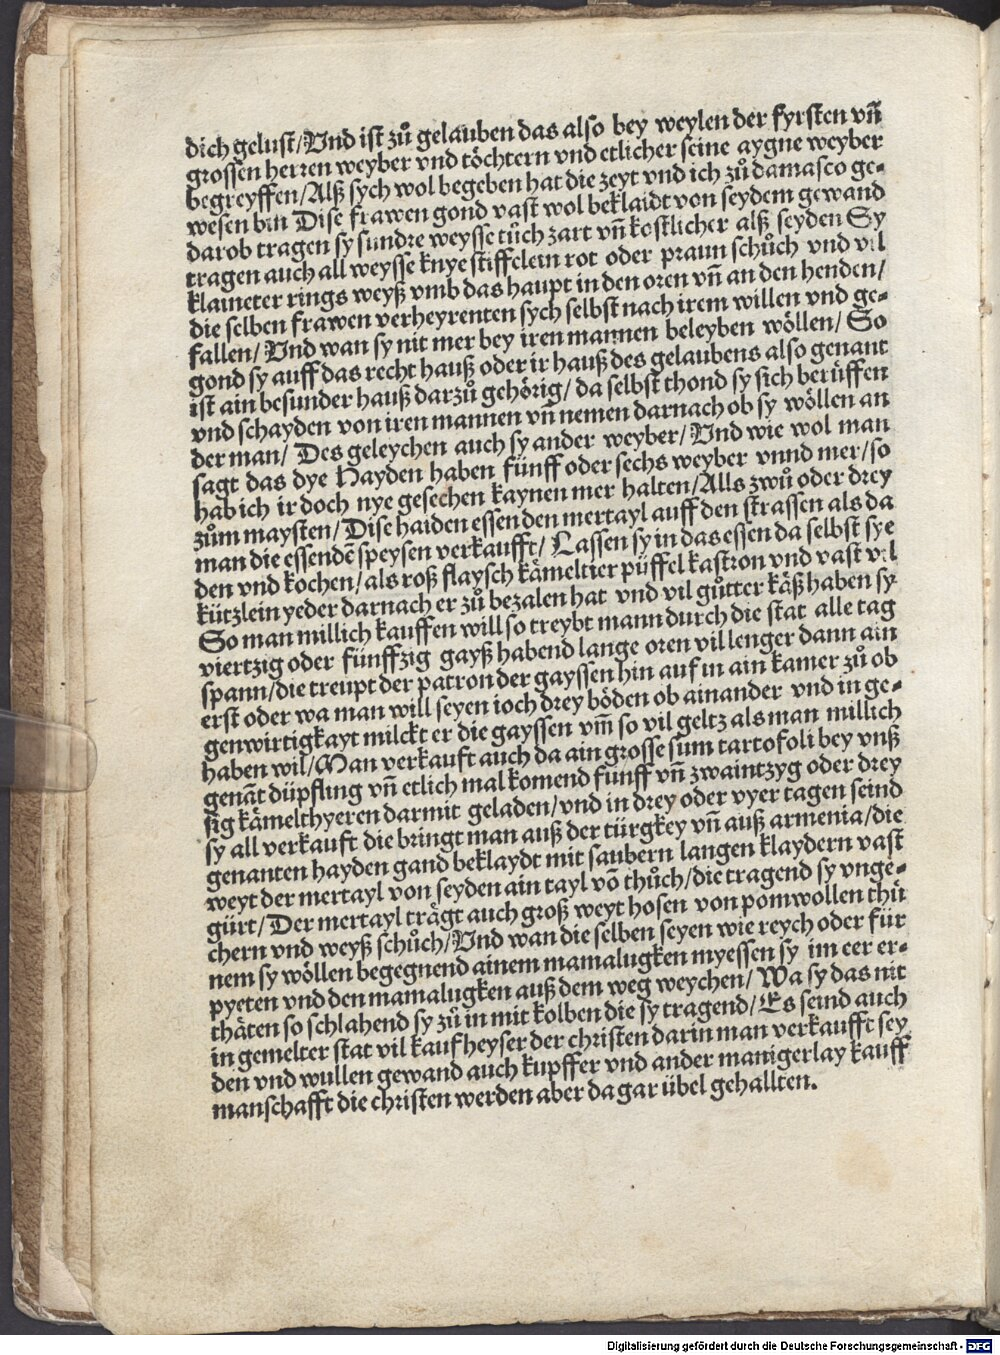 dich gelust/Vnd ist zů gelauben das also bey weylen der fyrsten vñ
grossen herren weyber vnd töchtern vnd etlicher seine aygne weyber
begreyffen/Alß sych wol begeben hat die zeyt vnd ich zů damasco ge-
wesen bin Dise frawen gond vast wol beklaidt von seydem gewand
darob tragen sy sundre weysse tůch zart vñ kostlicher alß seyden Sy
tragen auch all weysse knye stiffelein rot oder praun schůch vnd vil
klaineter rings weyß vmb das haupt in den oren vñ an den henden/
die selben frawen verheyrenten sych selbst nach irem willen vnd ge-
fallen/Vnd wan sy nit mer bey iren mannen beleyben wöllen/So
gond sy auff das recht hauß oder ir hauß des gelaubens also genant
ist ain besunder hauß darzů gehörig/da selbst thond sy sich berüffen
vnd schayden von iren mannen vñ nemen darnach ob sy wöllen an
der man/ Des geleychen auch sy ander weyber/Vnd wie wol man
sagt das dye Hayden haben fünff oder sechs weyber vnnd mer/so
hab ich ir doch nye gesechen kaynen mer halten/Alls zwů oder drey
zům maysten/Dise haiden essen den mertayl auff den strassen als da
man die essendē speysen verkaufft/Lassen sy in das essen da selbst sye
den vnd kochen/als roß flaysch kämeltier püffel kastron vnd vast vil
kützlein yeder darnach er zů bezalen hat vnd vil gůtter käß haben sy
So man millich kauffen will so treybt mann durch die stat alle tag
viertzig oder fünffzig gayß habend lange oren vil lenger dann ain
spann/die treupt der patron der gayssen hin auf in ain kamer zů ob
erst oder wa man will seyen ioch drey böden ob ainander vnd in ge-
genwirtigkayt milckt er die gayssen vm̃ so vil geltz als man millich
haben wil/Man verkauft auch da ain grosse sum tartofoli bey vnß
genāt düpfling vñ etlich mal komend funff vñ zwaintzyg oder drey
sig kämelthyeren darmit geladen/vnd in drey oder vyer tagen seind
sy all verkauft die bringt man auß der türgkey vñ auß armenia/die
genanten hayden gand beklaydt mit saubern langen klaydern vast
weyt der mertayl von seyden ain tayl vō thůch/die tragend sy vnge-
gürt/Der mertayl trägt auch groß weyt hosen von pomwollen thü
chern vnd weyß schůch/Vnd wan die selben seyen wie reych oder für
nem sy wöllen begegnend ainem mamalugken myessen sy im eer er-
pyeten vnd den mamalugken auß dem weg weychen/Wa sy das nit
thäten so schlahend sy zů in mit kolben die sy tragend/Es seind auch
in gemelter stat vil kauf heyser der christen darin man verkaufft sey
den vnd wullen gewand auch kupffer vnd ander manigerlay kauff
manschafft die christen werden aber da gar übel gehallten.
Digitalisierung gefördert durch die Deutsche Forschungsgemeinschaft - DFG